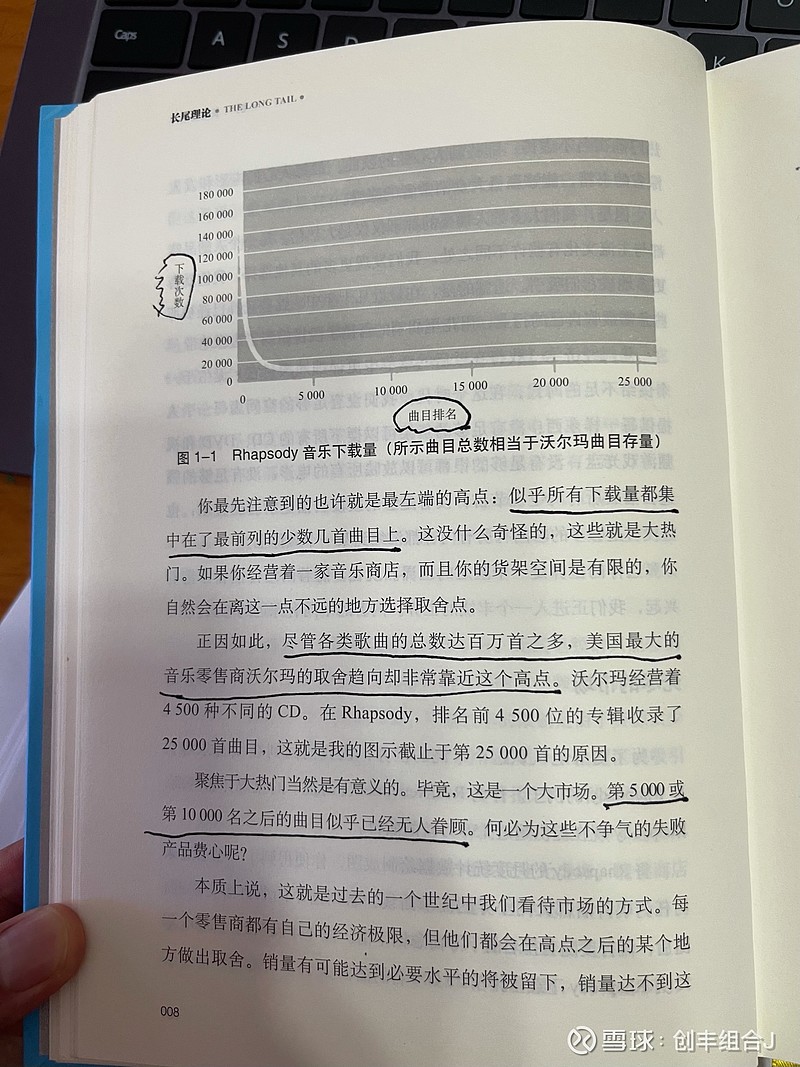 Caps
A
S
D
K
长尾理论 • THE LONG TAIL •
180 000
160 000
140 000
120 000
100 000
80 000
60 000
40 000
20 000
0
下载次数
0
5 000
10 000
15 000
20 000
25 000
曲目排名
图 1–1 Rhapsody 音乐下载量（所示曲目总数相当于沃尔玛曲目存量）
你最先注意到的也许就是最左端的高点：似乎所有下载量都集
中在了最前列的少数几首曲目上。这没什么奇怪的，这些就是大热
门。如果你经营着一家音乐商店，而且你的货架空间是有限的，你
自然会在离这一点不远的地方选择取舍点。
正因如此，尽管各类歌曲的总数达百万首之多，美国最大的
音乐零售商沃尔玛的取舍趋向却非常靠近这个高点。沃尔玛经营着
4 500 种不同的 CD。在 Rhapsody，排名前 4 500 位的专辑收录了
25 000 首曲目，这就是我的图示截止于第 25 000 首的原因。
聚焦于大热门当然是有意义的。毕竟，这是一个大市场。第 5 000 或
第 10 000 名之后的曲目似乎已经无人眷顾。何必为这些不争气的失败
产品费心呢？
本质上说，这就是过去的一个世纪中我们看待市场的方式。每
一个零售商都有自己的经济极限，但他们都会在高点之后的某个地
方做出取舍。销量有可能达到必要水平的将被留下，销量达不到这
008
雪球：创丰组合J